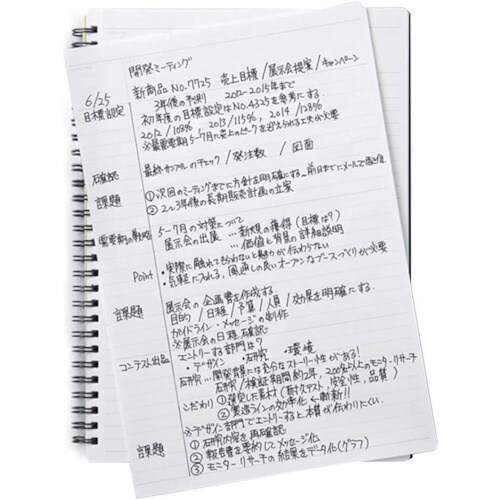 開発ミーティング
新商品No.7725 売上目標/展示会提案/キャンペーン
6/25 3年後の予測 2012-2015年まで
目標設定 初年度の目標設定はNo.4325を参考にする。
2012/108% 2013/115%, 2014/128%
※需要期5-7月に売上のピークを迎えられる工夫が必要
確認 最終サンプルのチェック/発注数/図面
課題 ①次回のミーティングまでに方針を明確にする。前日までにメールで返信
②2~3年後の長期販売計画の立案
需要期の戦略 5-7月の対策について
展示会の出展 …新規の獲得(目標は?)
…価値と背景の詳細説明
Point ・実際に触れてもらわないと魅力が伝わらない
・気軽に入れる,風通しの良いオープンなブースづくりが必要
課題 展示会の企画書を作成する
目的/日程/予算/人員/効果を明確にする。
ガイドライン・メッセージの制作
※展示会の日程確認
コンテスト出品 エントリーする部門は?
・デザイン ・研究 ・環境
研究…開発背景には充分なストーリー性がある!
研究/検証期間約2年, 200名以上のモニターリサーチ
こだわり ①選定した素材(耐久テスト,安全性,品質)
②製造ラインの効率化←斬新!!
※デザイン部門でエントリーすると本質が伝わりにくい。
課題 ①研究内容を再確認
②報告書を要約してメッセージ化
③モニターリサーチの結果をデータ化(グラフ)